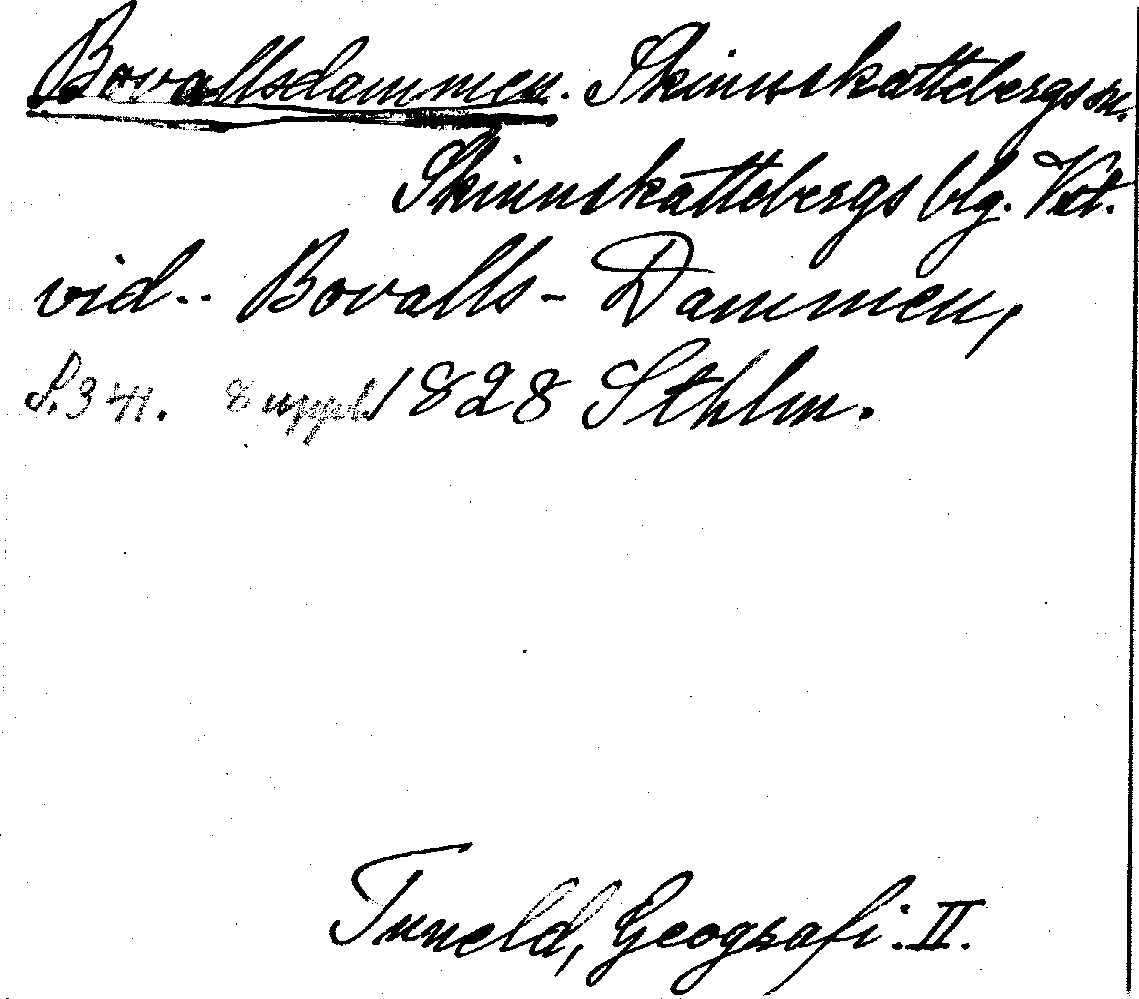 Bovallsdammen. Skinnskattebergs sn.
Skinnskattebergs blg. Vstl.
vid.. Bovalls-Dammen,
S. 341. 8 uppl. 1828 Sthlm.
Tuneld, Geografi. II.